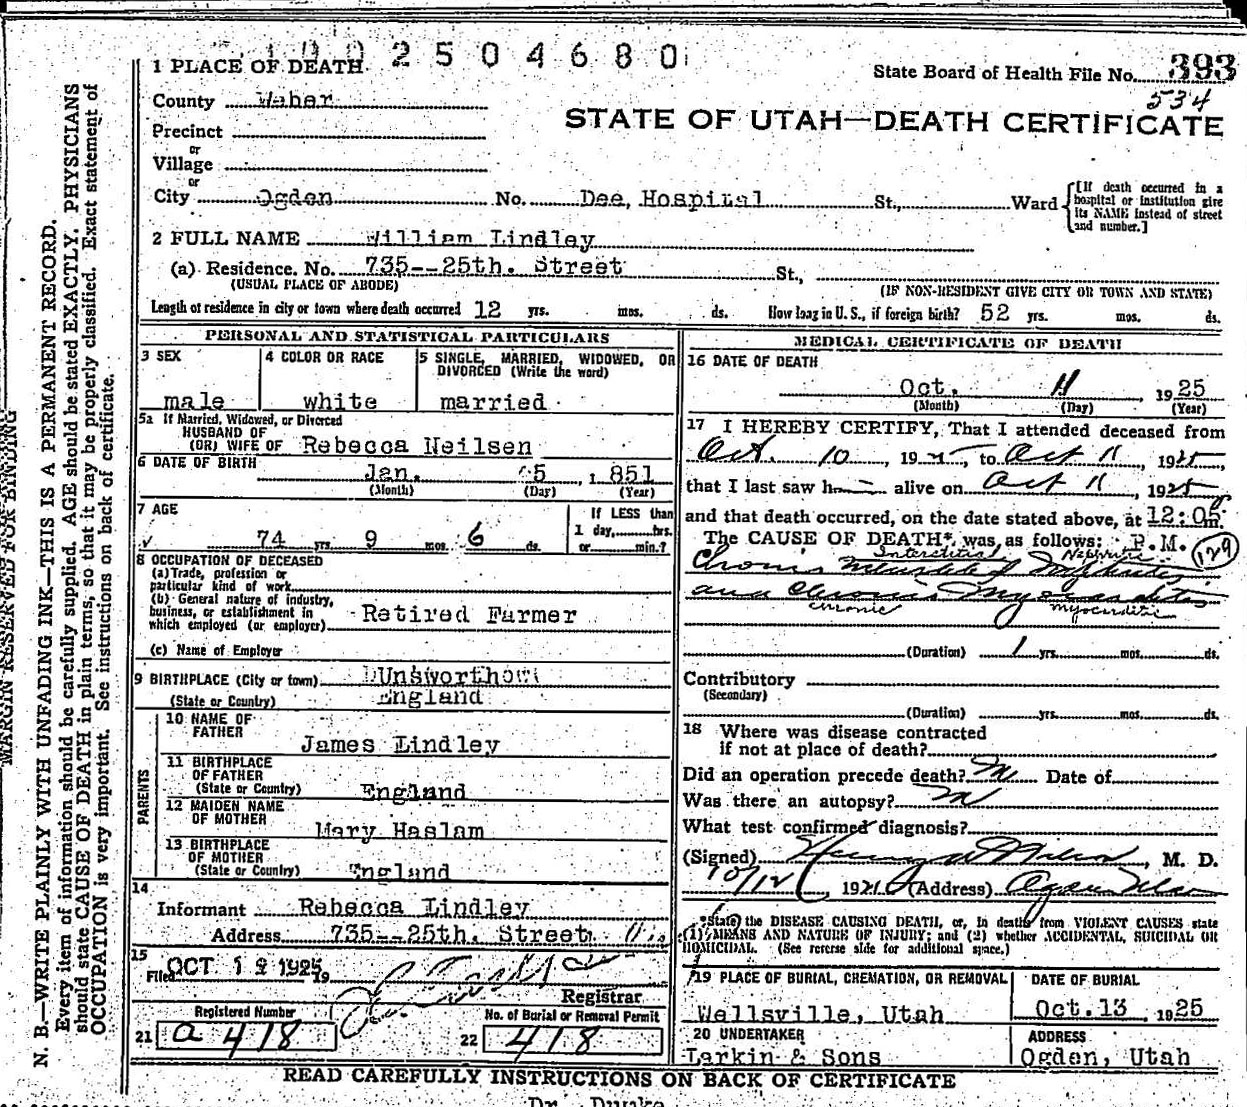 1002504680
1 PLACE OF DEATH
State Board of Health File No. 393
534
County Weber
STATE OF UTAH—DEATH CERTIFICATE
Precinct
or
Village
or
City Ogden No. Dee, Hospital St., Ward [If death occurred in a hospital or institution give its NAME instead of street and number.]
2 FULL NAME William Lindley
(a) Residence. No. 735--25th. Street St.,
(USUAL PLACE OF ABODE) (IF NON-RESIDENT GIVE CITY OR TOWN AND STATE)
Length of residence in city or town where death occurred 12 yrs. mos. ds. How long in U. S., if foreign birth? 52 yrs. mos. ds.
PERSONAL AND STATISTICAL PARTICULARS
3 SEX
male
4 COLOR OR RACE
white
5 SINGLE, MARRIED, WIDOWED, OR
DIVORCED (Write the word)
married
5a If Married, Widowed, or Divorced
HUSBAND OF
(OR) WIFE OF Rebecca Neilsen
6 DATE OF BIRTH
Jan. 5 , 1851
(Month) (Day) (Year)
7 AGE
74 yrs. 9 mos. 6 ds.
If LESS than
1 day, hrs.
or min.?
8 OCCUPATION OF DECEASED
(a) Trade, profession or
particular kind of work
(b) General nature of industry,
business, or establishment in
which employed (or employer) Retired Farmer
(c) Name of Employer
9 BIRTHPLACE (City or town)
(State or Country) England
PARENTS
10 NAME OF
FATHER
James Lindley
11 BIRTHPLACE
OF FATHER
(State or Country) England
12 MAIDEN NAME
OF MOTHER
Mary Haslam
13 BIRTHPLACE
OF MOTHER
(State or Country) England
14
Informant Rebecca Lindley
Address 735--25th. Street
15
Filed OCT 12 1925 19
Registrar
Registered Number
21 a 418
No. of Burial or Removal Permit
22 418
MEDICAL CERTIFICATE OF DEATH
16 DATE OF DEATH
Oct. 11 1925
(Month) (Day) (Year)
17 I HEREBY CERTIFY, That I attended deceased from
Oct. 10, 1925, to Oct 11, 1925,
that I last saw h alive on Oct 11, 1925
and that death occurred, on the date stated above, at 12:05 m.
The CAUSE OF DEATH* was as follows: P.M. 129
Interstitial Nephritis
Chronic Interstitial Nephritis
and Chronic Myocarditis
chronic myocarditis
(Duration) 1 yrs. mos. ds.
Contributory
(Secondary)
(Duration) yrs. mos. ds.
18 Where was disease contracted
if not at place of death?
Did an operation precede death? No Date of
Was there an autopsy? No
What test confirmed diagnosis?
(Signed) , M. D.
10/12 , 192 (Address) Ogden Utah
*State the DISEASE CAUSING DEATH, or, in deaths from VIOLENT CAUSES state
(1) MEANS AND NATURE OF INJURY; and (2) whether ACCIDENTAL, SUICIDAL OR
HOMICIDAL. (See reverse side for additional space.)
19 PLACE OF BURIAL, CREMATION, OR REMOVAL
Wellsville, Utah
DATE OF BURIAL
Oct. 13 , 1925
20 UNDERTAKER
Larkin & Sons
ADDRESS
Ogden, Utah
READ CAREFULLY INSTRUCTIONS ON BACK OF CERTIFICATE
MARGIN RESERVED FOR BINDING
N. B.—WRITE PLAINLY WITH UNFADING INK—THIS IS A PERMANENT RECORD.
Every item of information should be carefully supplied. AGE should be stated EXACTLY. PHYSICIANS
should state CAUSE OF DEATH in plain terms, so that it may be properly classified. Exact statement of
OCCUPATION is very important. See instructions on back of certificate.